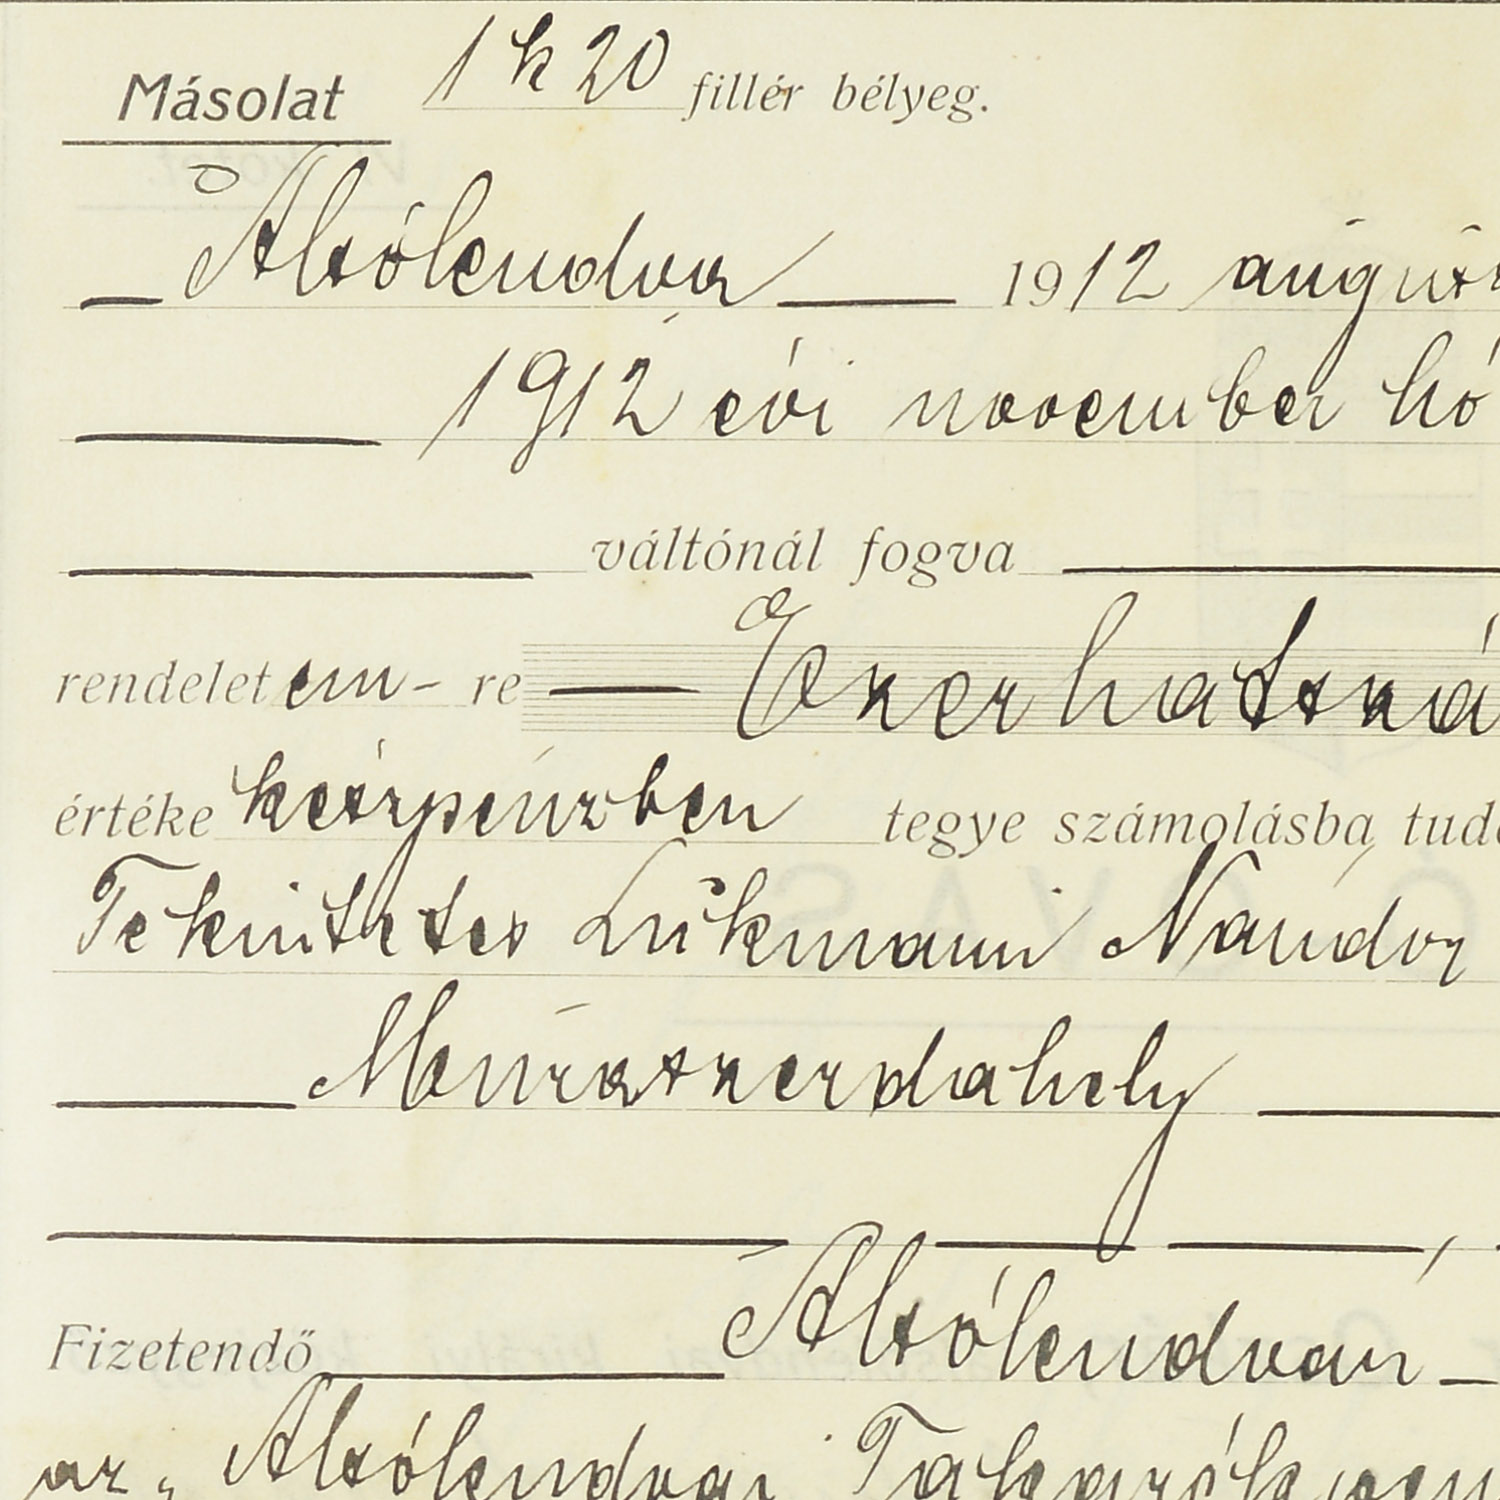 Másolat 1 k 20 fillér bélyeg.
Alsólendva 1912 august
1912 évi november hó
váltónál fogva
rendelet em- re Ezerhatszá
értéke készpénzben tegye számolásba, tud
Tekintetes Lükmann Nándor
Muraszerdahely
Fizetendő Alsólendván
az „Alsólendvai Takarék